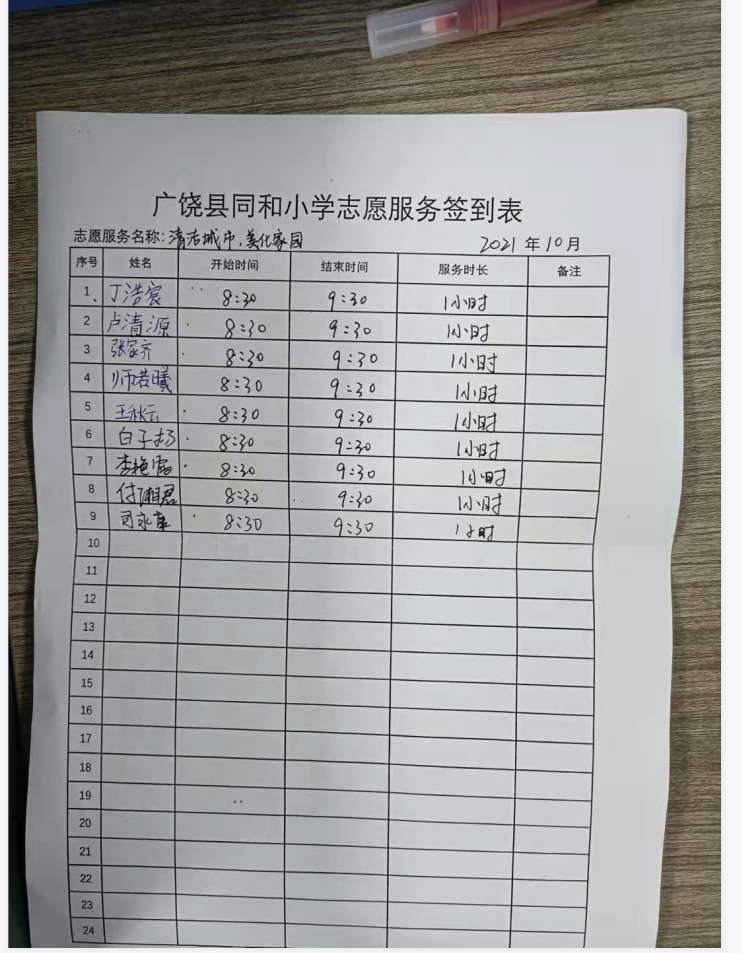 广饶县同和小学志愿服务签到表
志愿服务名称:清洁城市,美化家园 2021年10月
序号 姓名 开始时间 结束时间 服务时长 备注
1、 丁浩宸 8:30 9:30 1小时
2 卢清源 8:30 9:30 1小时
3 张家齐 8:30 9:30 1小时
4 师若曦 8:30 9:30 1小时
5 王秋云 8:30 9:30 1小时
6 白子扬 8:30 9:30 1小时
7 李艳霞 8:30 9:30 1小时
8 付湘君 8:30 9:30 1小时
9 8:30 9:30 1小时
10
11
12
13
14
15
16
17
18
19
20
21
22
23
24